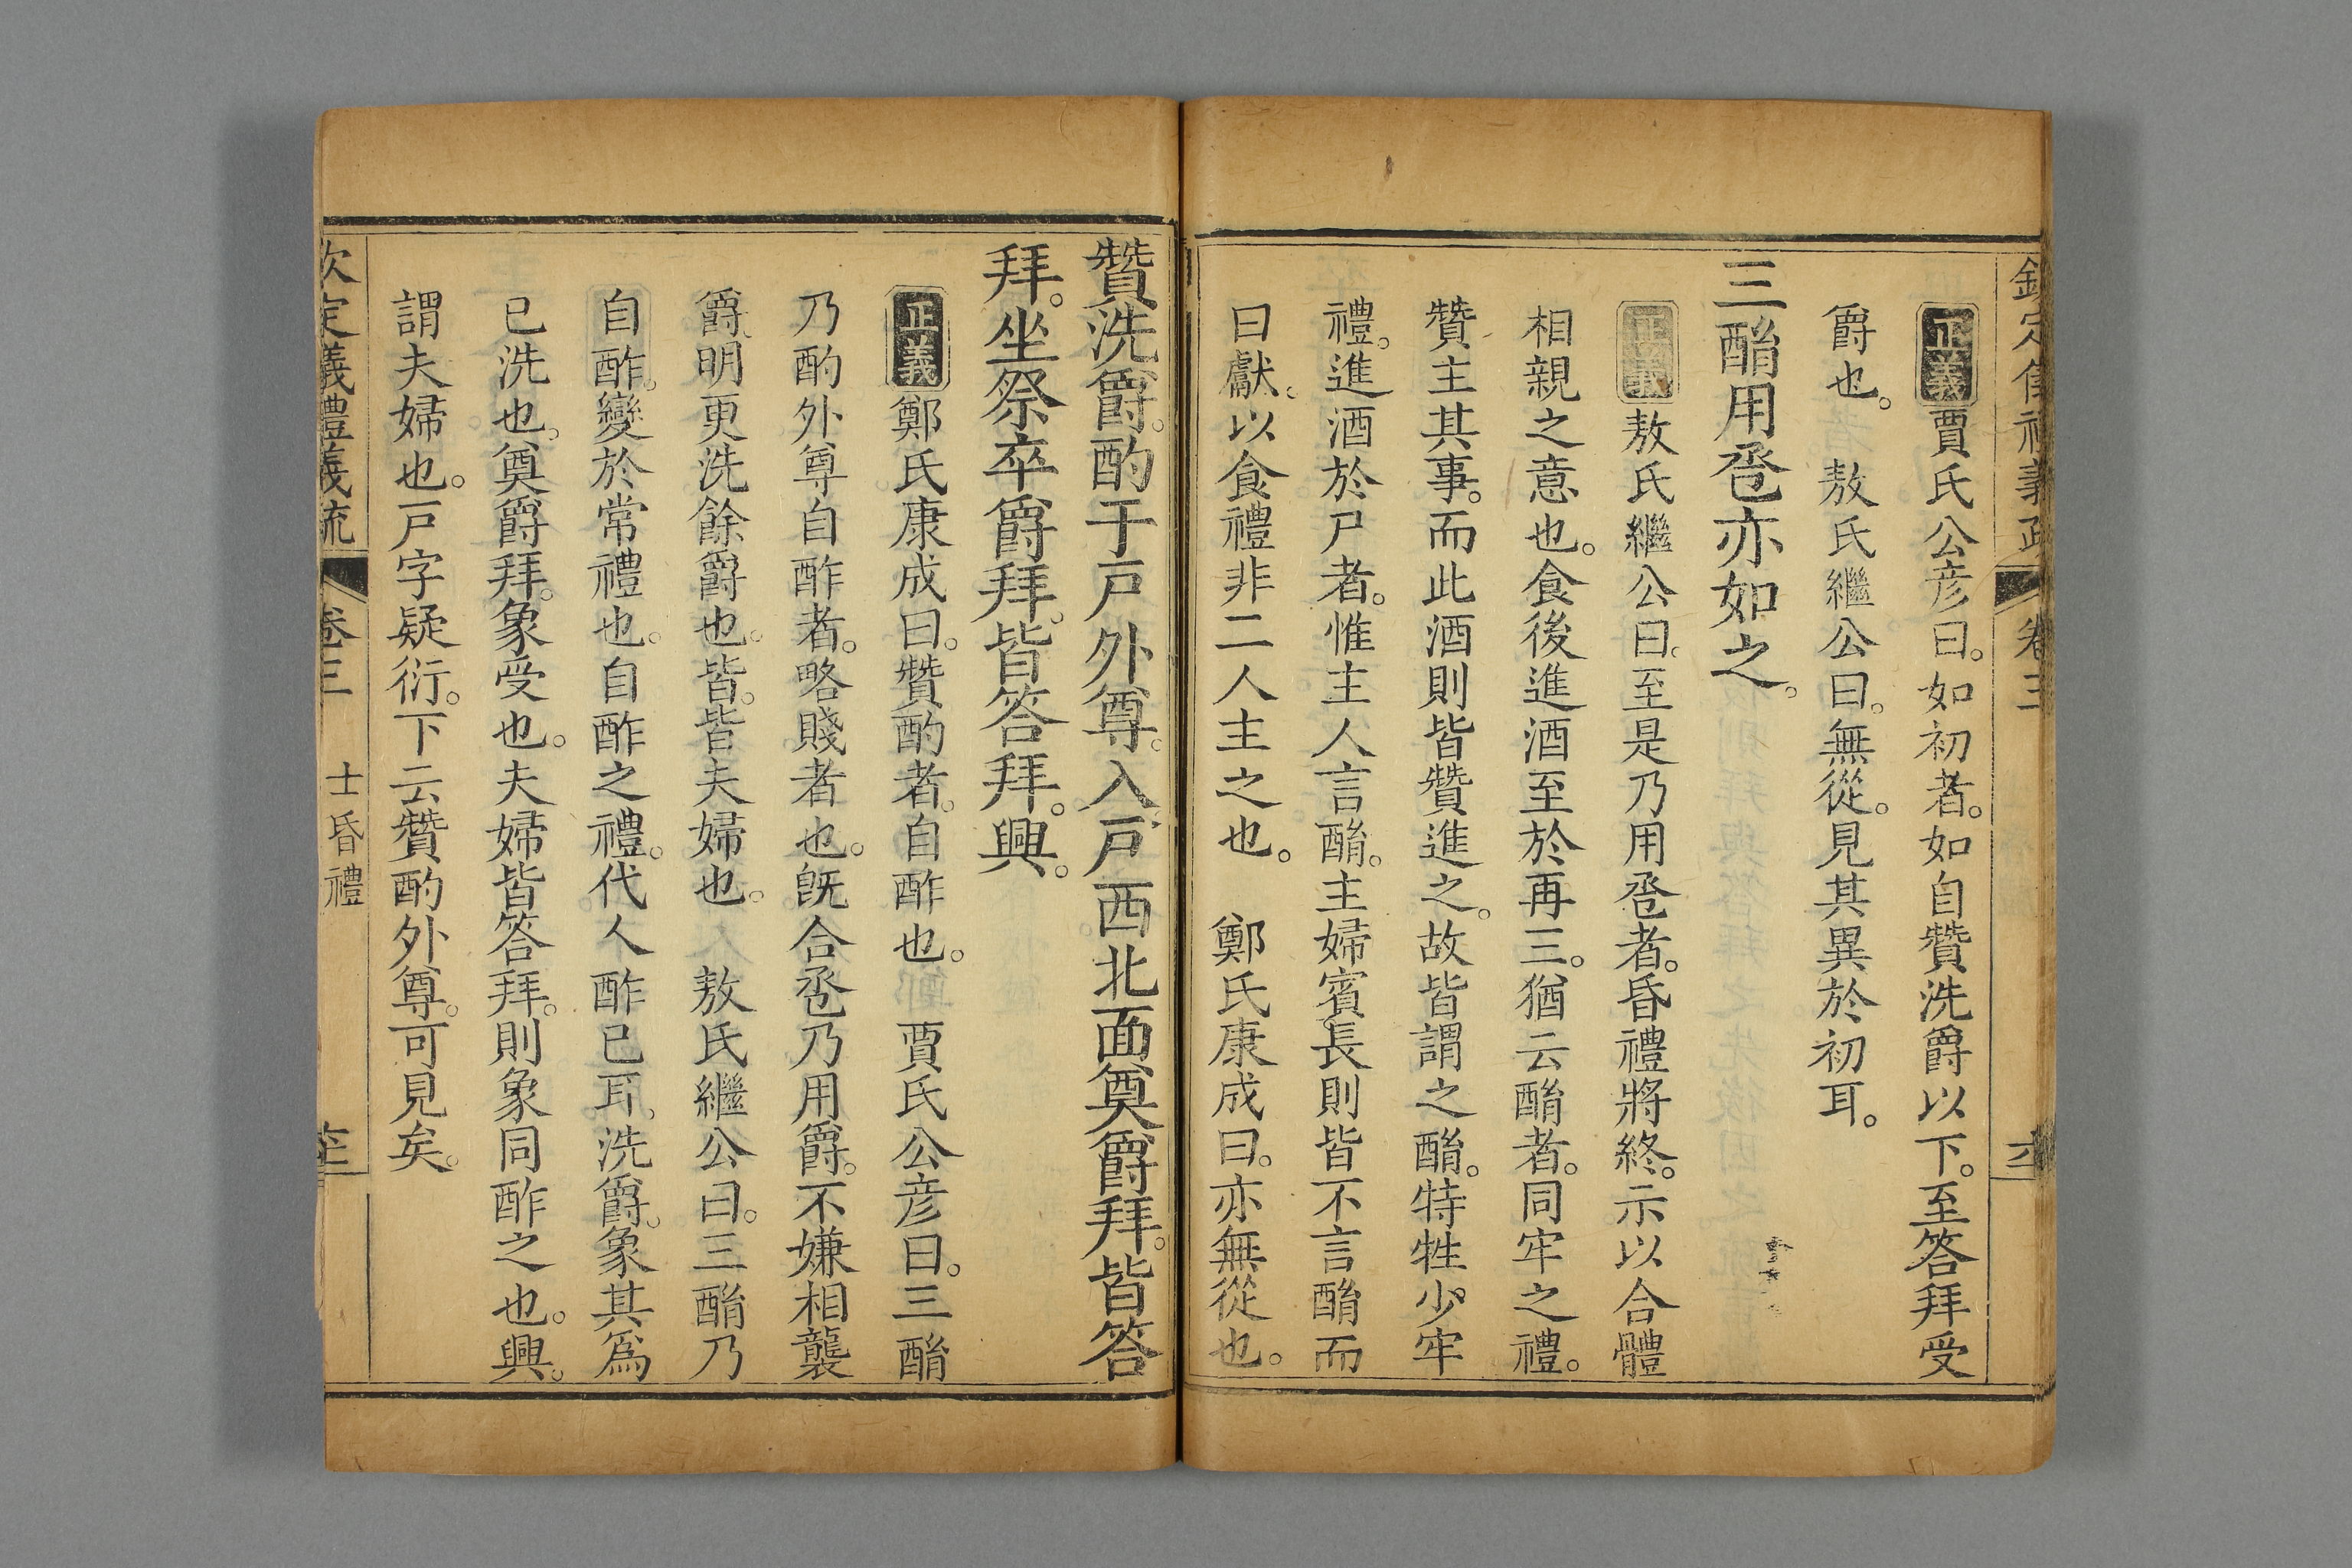 正義賈氏公彦曰。如初者。如自贊洗爵以下。至答拜受
爵也。　敖氏繼公曰。無從。見其異於初耳。
三酳用卺亦如之。
正義敖氏繼公曰。至是乃用卺者。昏禮將終。示以合體
相親之意也。食後進酒至於再三。猶云酳者。同牢之禮。
贊主其事。而此酒則皆贊進之。故皆謂之酳。特牲少牢
禮。進酒於尸者。惟主人言酳。主婦賓長則皆不言酳而
曰獻。以食禮非二人主之也。　鄭氏康成曰。亦無從也。
贊洗爵。酌于戸外尊。入戸西北面奠爵拜。皆答
拜。坐祭卒爵拜。皆答拜。興。
正義鄭氏康成曰。贊酌者。自酢也。　賈氏公彦曰。三酳
乃酌外尊自酢者。略賤者也。旣合卺乃用爵。不嫌相襲
爵。明更洗餘爵也。皆。皆夫婦也。　敖氏繼公曰。三酳乃
自酢。變於常禮也。自酢之禮。代人酢已耳。洗爵。象其爲
已洗也。奠爵拜。象受也。夫婦皆答拜。則象同酢之也。興。
謂夫婦也。戸字疑衍。下云贊酌外尊。可見矣。
欽定儀禮義疏　卷三　士昏禮